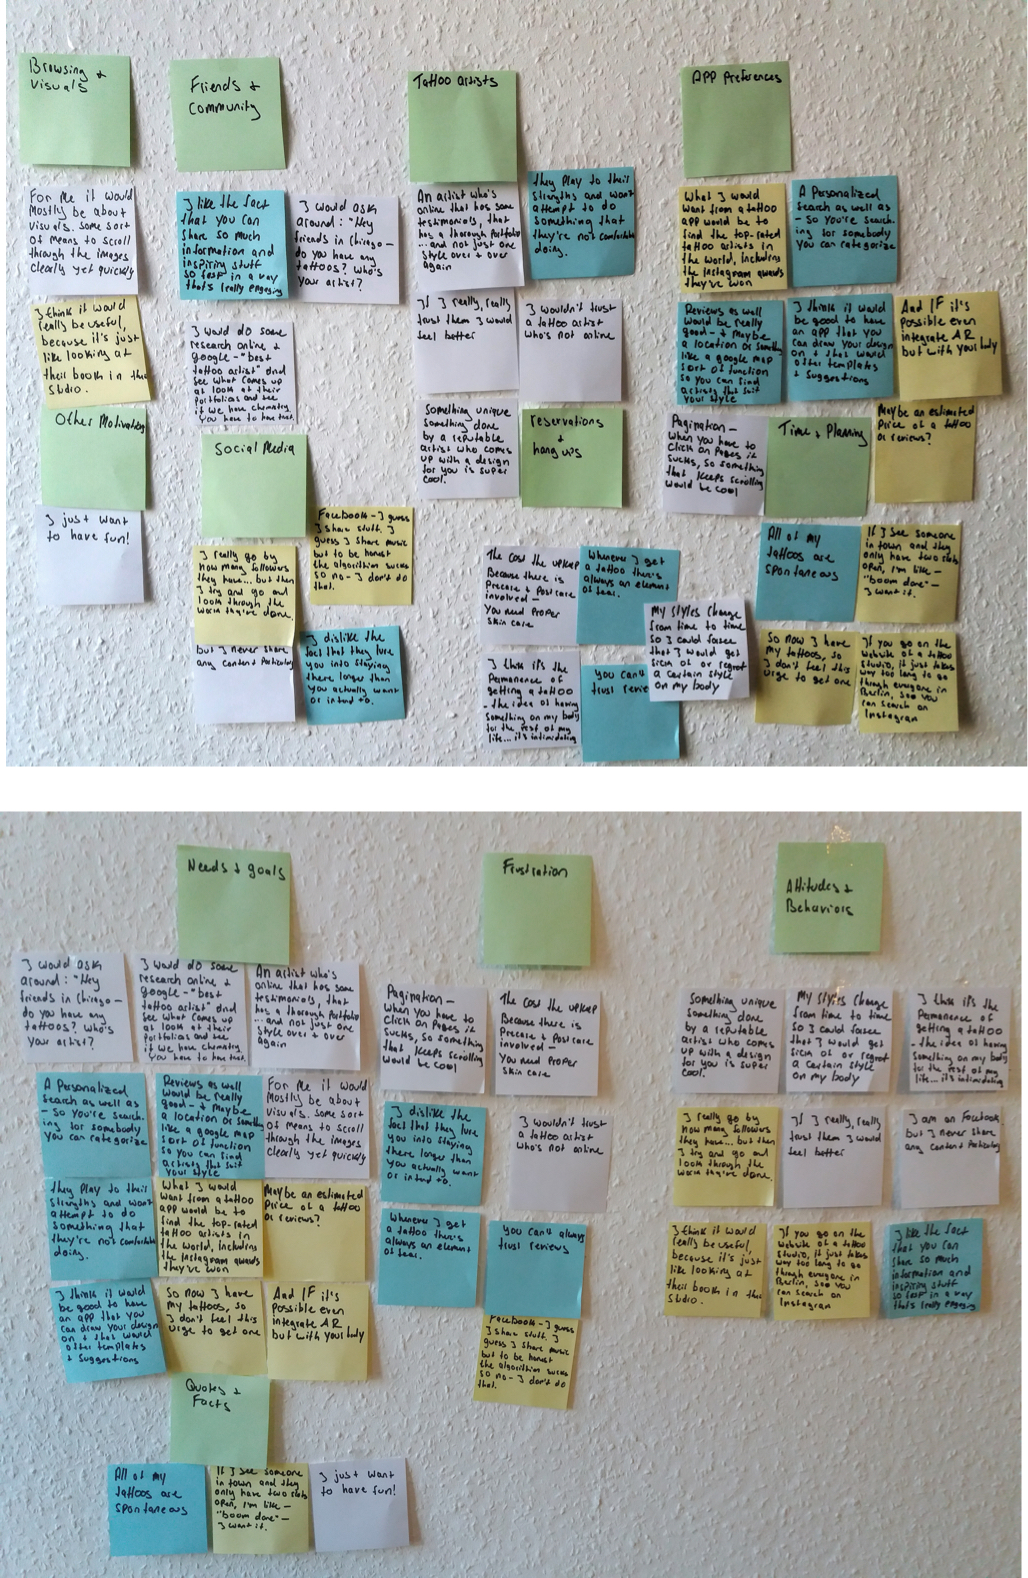 Browsing +
Visuals
For Me it would
Mostly be about
Visuals. some sort
of Means to scroll
through the images
clearly yet quickly
I think it would
really be useful,
because it's just
like looking at
their book in the
studio.
Other Motivations
I just want
to have fun!
Friends +
Community
I like the fact
that you can
share so much
information and
inspiring stuff
so fast in a way
that's really engaging
I would ask
around: "Hey
friends in Chicago -
do you have any
tattoos? Who's
your artist?
I would do some
research online +
google - "best
tattoo artist" and
see what comes up
at look at their
Portfolios and see
if we have chemistry
You have to have that.
Social Media
I really go by
how many followers
they have... but then
I try and go and
look through the
work they've done.
Facebook - I guess
I share stuff. I
guess I share music
but to be honest
the algorithm sucks
so no - I don't do
that.
but I never share
any content Particularly
I dislike the
fact that they lure
you into staying
there longer than
you actually want
or intend to.
Tattoo artists
An artist who's
online that has some
testimonials, that
has a thorough Portfolio
...and not just one
style over + over
again
they play to their
strengths and wont
attempt to do
something that
they're not comfortable
doing.
If I really, really
trust them I would
feel better
I wouldn't trust
a tattoo artist
who's not online
Something unique
something done
by a reputable
artist who comes
up with a design
for you is super
cool.
reservations
+
hang ups
The cost the upkeep
Because there is
Precare + Post care
involved -
You need proper
skin care
Whenever I get
a tattoo there's
always an element
of fear.
My styles change
from time to time
so I could foresee
that I would get
sick of or regret
a certain style
on my body
I think it's the
Permanence of
getting a tattoo
- the idea of having
something on my body
for the rest of my
life... it's intimidating
you can't
trust revie
APP Preferences
What I would
want from a tattoo
app would be to
find the top-rated
tattoo artists in
the world, including
the Instagram awards
they've won
A Personalized
search as well as
- so you're search-
ing for somebody
you can categorize
Reviews as well
would be really
good - + Maybe
a location or something
like a google map
sort of function
so you can find
artists that suit
your style
I think it would
be good to have
an app that you
can draw your design
on + that would
offer templates
+ suggestions
And IF it's
possible even
integrate AR
but with your body
Pagination -
when you have to
click on Pages it
sucks, so something
that keeps scrolling
would be cool
Time + Planning
Maybe an estimated
Price of a tattoo
or reviews?
All of my
tattoos are
spontaneous
If I see someone
in town and they
only have two slots
open, I'm like -
"boom done" -
I want it.
So now I have
my tattoos, so
I don't feel this
urge to get one
If you go on the
website of a tattoo
studio, it just takes
way too long to go
through everyone in
Berlin, so you
can search on
Instagram
Needs + goals
I would ask
around: "Hey
friends in Chicago -
do you have any
tattoos? Who's
your artist?
I would do some
research online +
google - "best
tattoo artist" and
see what comes up
at look at their
Portfolios and see
if we have chemistry
You have to have that.
An artist who's
online that has some
testimonials, that
has a thorough Portfolio
...and not just one
style over + over
again
A Personalized
search as well as
- so you're search-
ing for somebody
you can categorize
Reviews as well
would be really
good - + Maybe
a location or something
like a google map
sort of function
so you can find
artists that suit
your style
For Me it would
Mostly be about
Visuals. some sort
of Means to scroll
through the images
clearly yet quickly
they play to their
strengths and wont
attempt to do
something that
they're not comfortable
doing.
What I would
want from a tattoo
app would be to
find the top-rated
tattoo artists in
the world, including
the Instagram awards
they've won
Maybe an estimated
Price of a tattoo
or reviews?
I think it would
be good to have
an app that you
can draw your design
on + that would
offer templates
+ suggestions
So now I have
my tattoos, so
I don't feel this
urge to get one
And IF it's
possible even
integrate AR
but with your body
Quotes +
Facts
All of my
tattoos are
spontaneous
If I see someone
in town and they
only have two slots
open, I'm like -
"boom done" -
I want it.
I just want
to have fun!
Frustration
Pagination -
when you have to
click on Pages it
sucks, so something
that keeps scrolling
would be cool
The cost the upkeep
Because there is
Precare + Post care
involved -
You need proper
skin care
I dislike the
fact that they lure
you into staying
there longer than
you actually want
or intend to.
I wouldn't trust
a tattoo artist
who's not online
Whenever I get
a tattoo there's
always an element
of fear.
you can't always
trust reviews
Facebook - I guess
I share stuff. I
guess I share music
but to be honest
the algorithm sucks
so no - I don't do
that.
Attitudes +
Behaviors
Something unique
something done
by a reputable
artist who comes
up with a design
for you is super
cool.
My styles change
from time to time
so I could foresee
that I would get
sick of or regret
a certain style
on my body
I think it's the
Permanence of
getting a tattoo
- the idea of having
something on my body
for the rest of my
life... it's intimidating
I really go by
how many followers
they have... but then
I try and go and
look through the
work they've done.
If I really, really
trust them I would
feel better
I am on Facebook
but I never share
any content Particularly
I think it would
really be useful,
because it's just
like looking at
their book in the
studio.
If you go on the
website of a tattoo
studio, it just takes
way too long to go
through everyone in
Berlin, so you
can search on
Instagram
I like the fact
that you can
share so much
information and
inspiring stuff
so fast in a way
that's really engaging